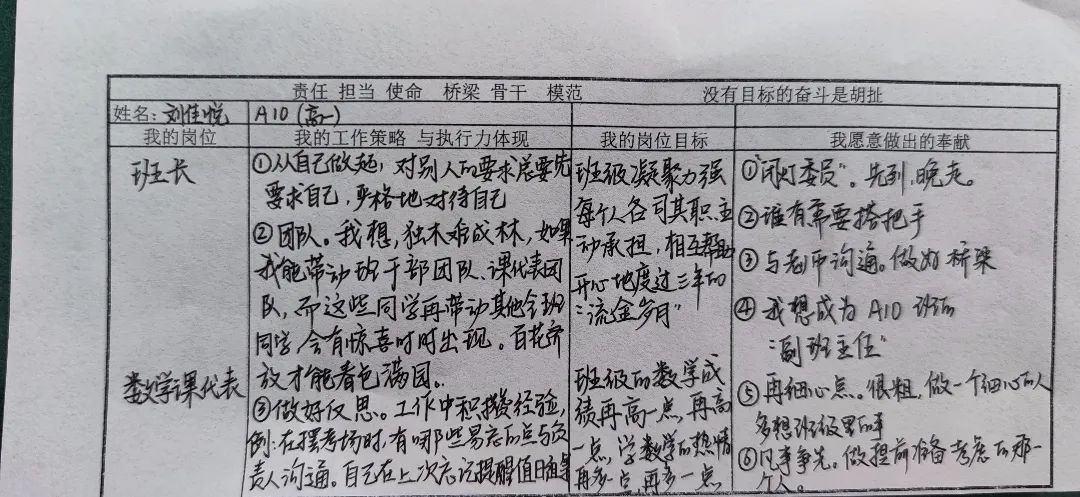 责任 担当 使命 桥梁 骨干 模范 没有目标的奋斗是胡扯
姓名：刘佳悦 A10（高一）
我的岗位 我的工作策略 与执行力体现 我的岗位目标 我愿意做出的奉献
班长
①从自己做起，对别人的要求总要先
要求自己，严格地对待自己
②团队。我想，独木难成林，如果
我能带动班干部团队、课代表团
队，而这些同学再带动其他全班
同学，会有惊喜时时出现。百花齐
放才能春色满园。
班级凝聚力强
每个人各司其职，主
动承担，相互帮助
开心地度过三年的
“流金岁月”
①“闭灯委员”。先到，晚走。
②谁有需要搭把手
③与老师沟通。做好桥梁
④我想成为A10班的
“副班主任”
数学课代表
③做好反思。工作中积攒经验，
例：在摆考场时，有哪些易忘的点与负
责人沟通。自己在上次忘记提醒值日画
班级的数学成
绩再高一点，再高
一点，学数学的热情
再多一点，再多一点
⑤再细心点。很粗，做一个细心的人
多想班级里的事
⑥凡事争先。做提前准备考虑的那一
个人。